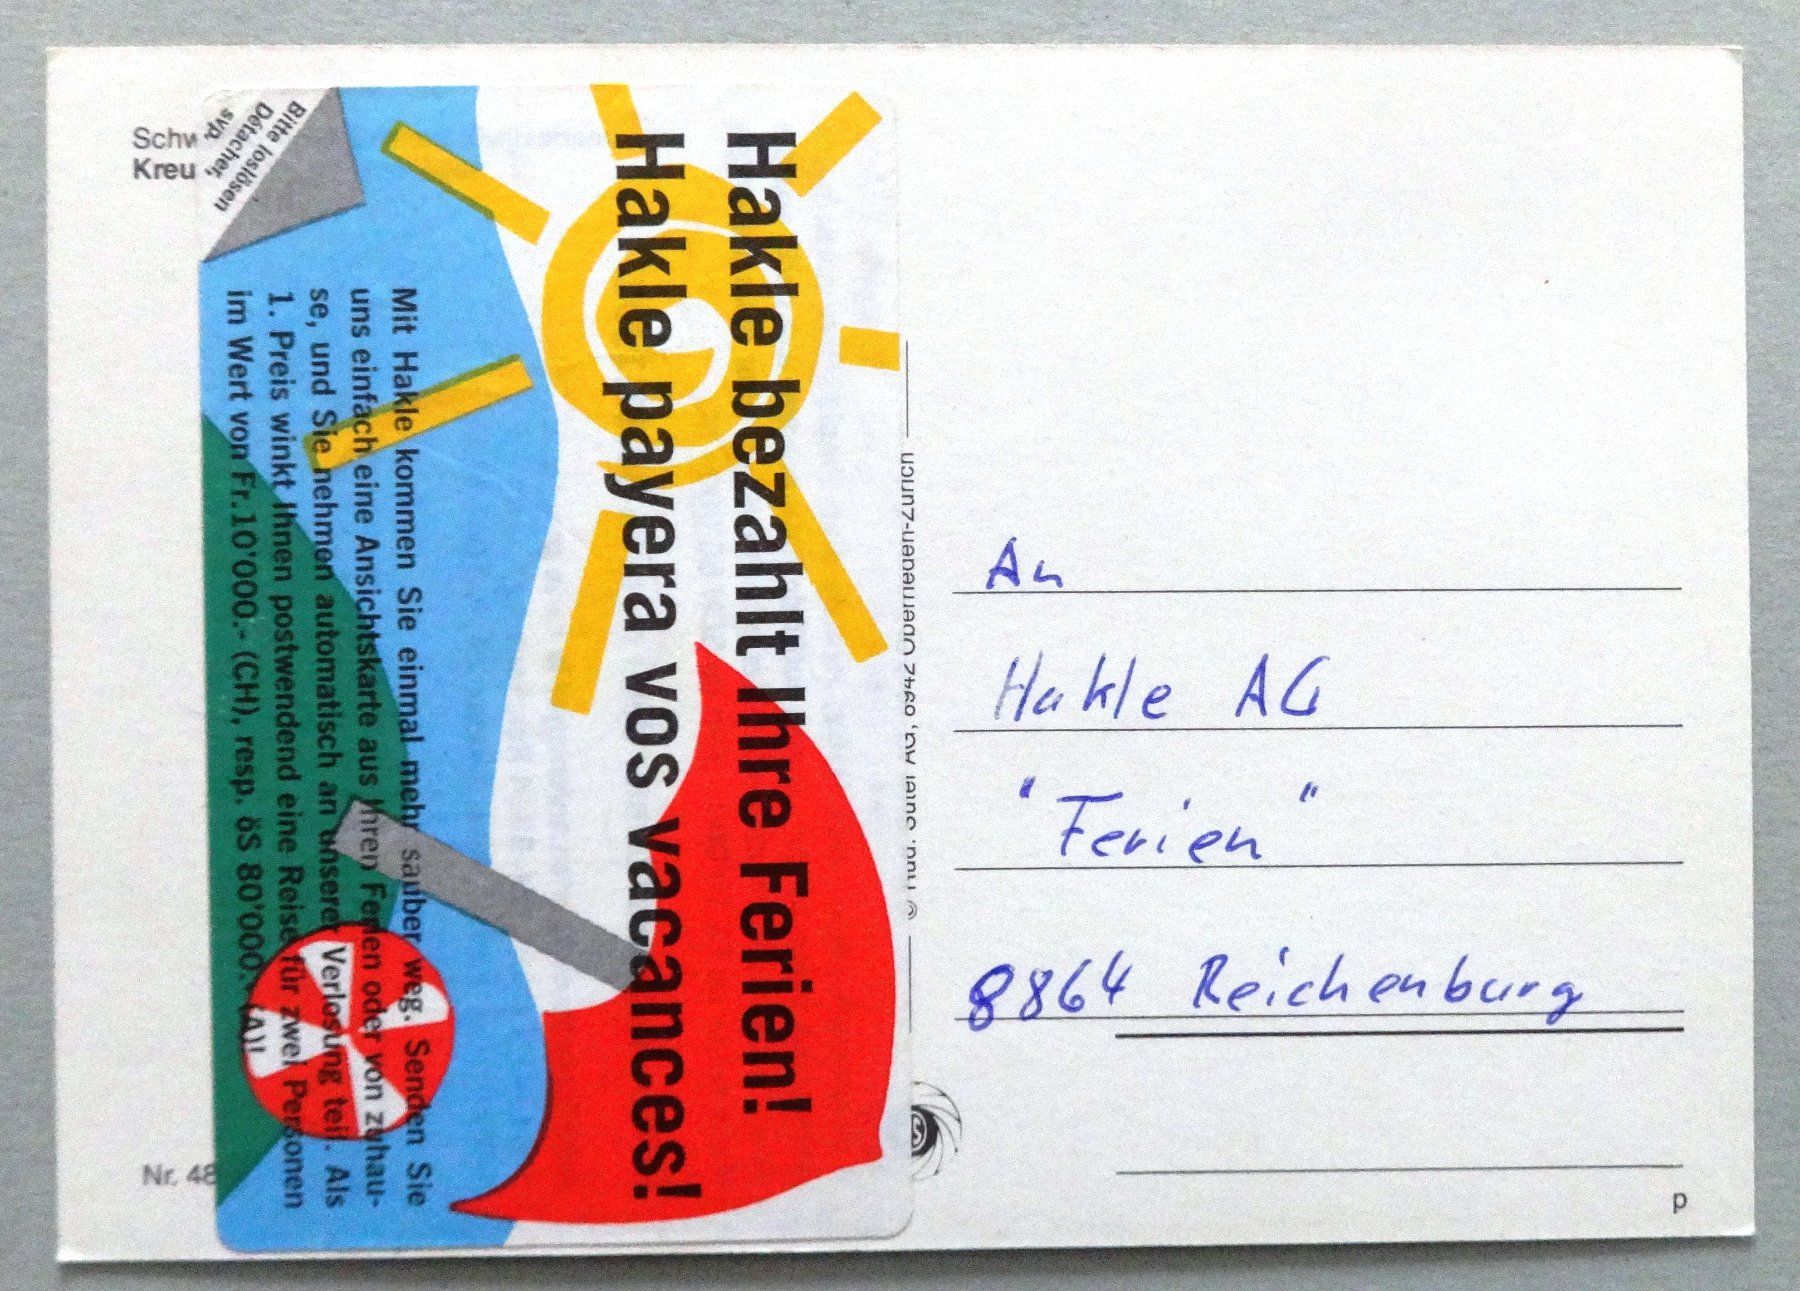 Schw
Kreu
Bitte loslösen
Détacher,
svp.
Hakle bezahlt Ihre Ferien!
Hakle payera vos vacances!
Mit Hakle kommen Sie einmal mehr sauber weg. Senden Sie
uns einfach eine Ansichtskarte aus Ihren Ferien oder von zuhau-
se, und Sie nehmen automatisch an unserer Verlosung teil. Als
1. Preis winkt Ihnen postwendend eine Reise für zwei Personen
im Wert von Fr.10'000.- (CH), resp. öS 80'000.- (A)!
Nr. 48
An
Hakle AG
"Ferien"
8864 Reichenburg
p